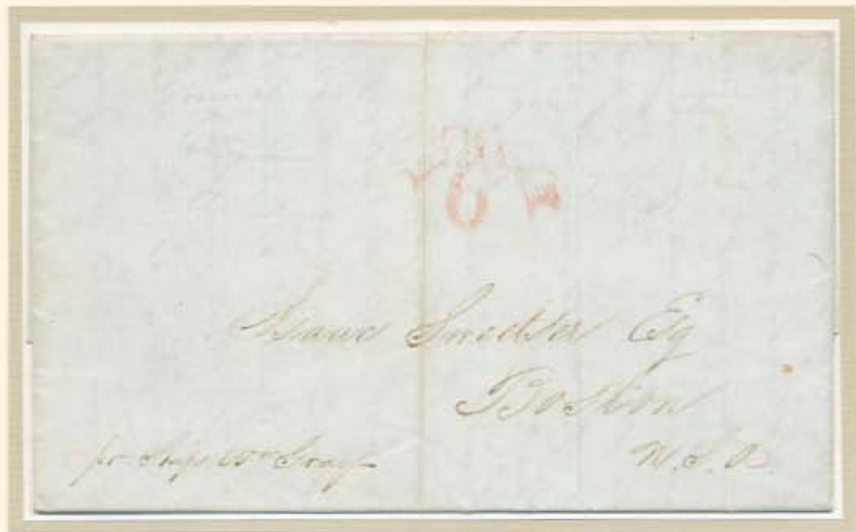 6
Isaac Sweetser Esq
Boston
U.S.A.
pr Ship Wm Gray